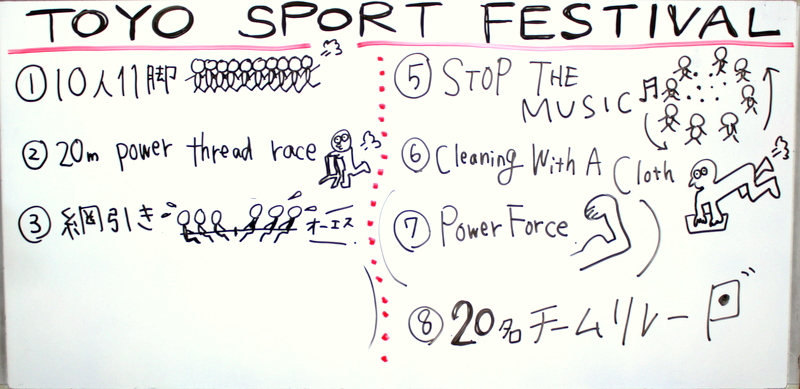 TOYO SPORT FESTIVAL
① 10人11脚
② 20m power thread race
③ 綱引き オーエス
⑤ STOP THE
MUSIC
⑥ Cleaning With A Cloth
⑦ Power Force
⑧ 20名チームリレー